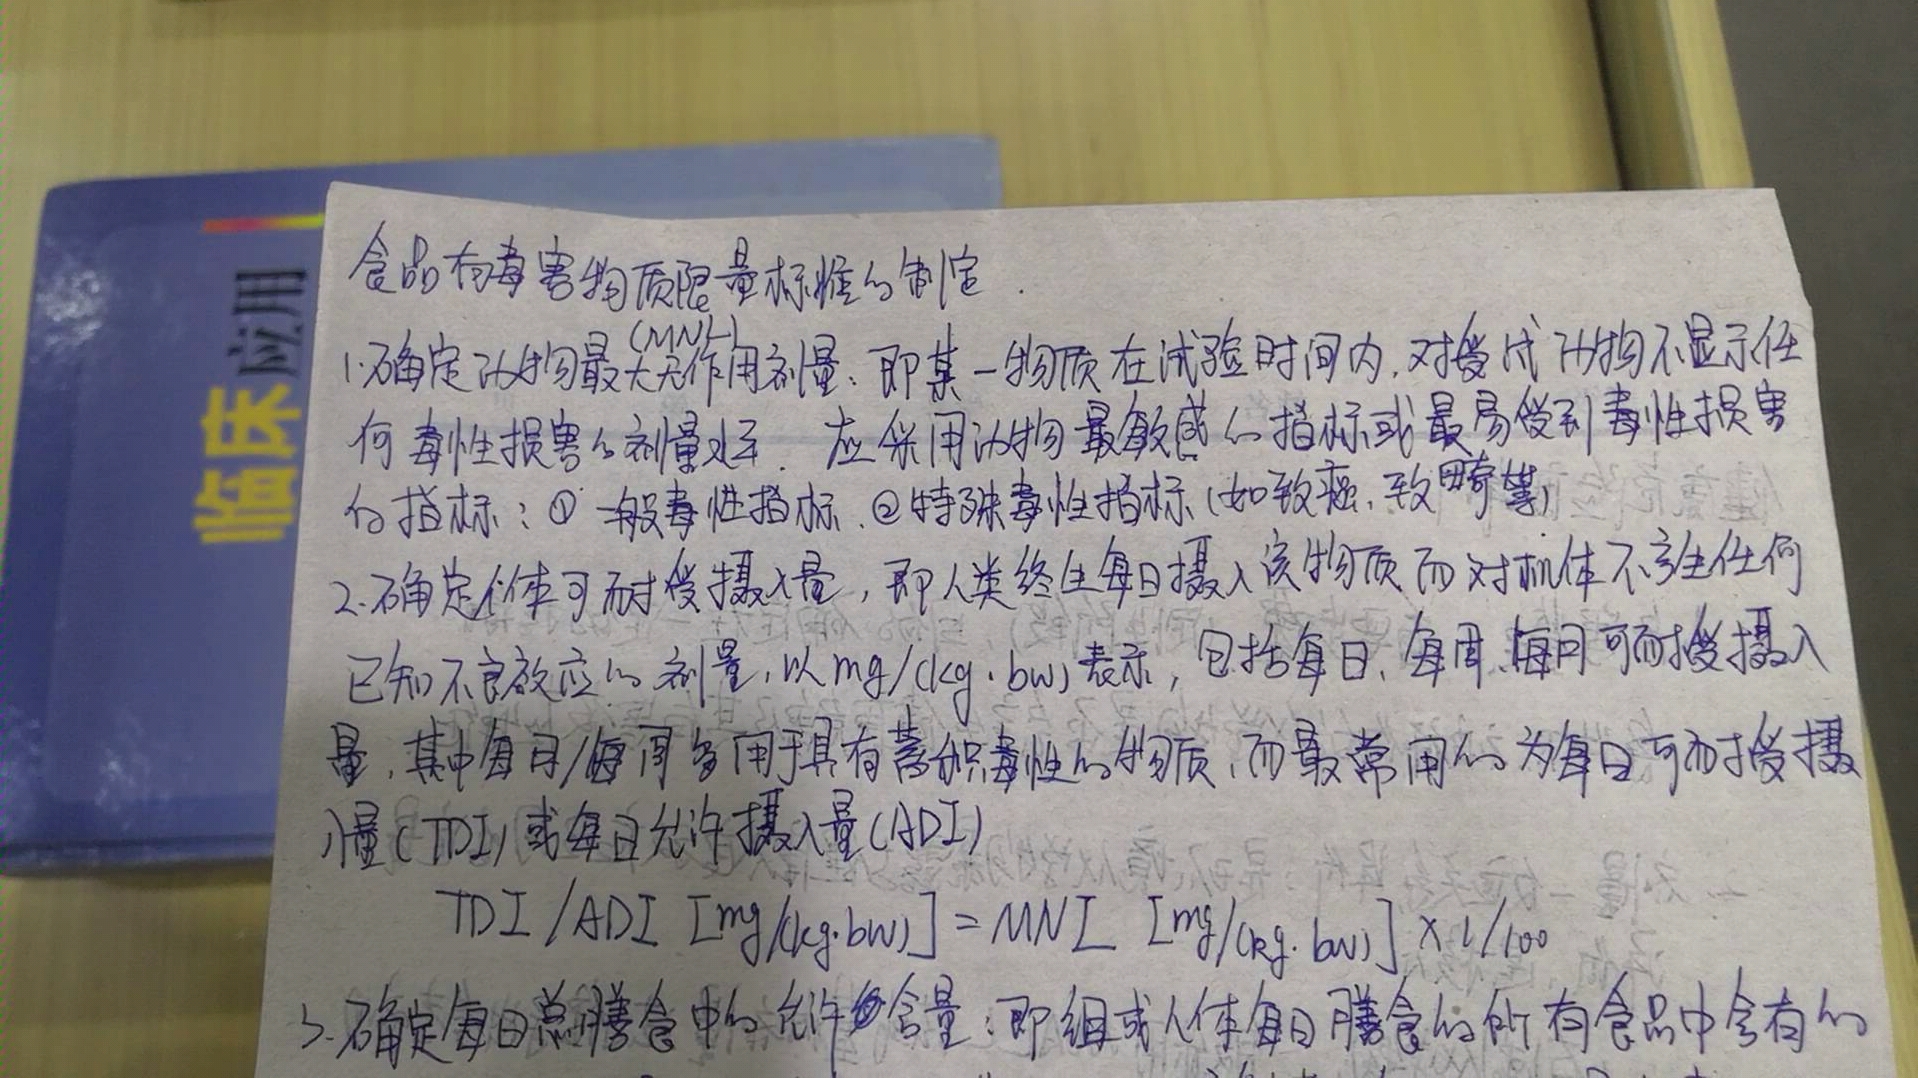 临床应用
食品有毒害物质限量标准的制定.
(MNL)
1.确定动物最大无作用剂量:即某一物质在试验时间内,对受试动物不显示任
何毒性损害的剂量水平. 应采用动物最敏感的指标或最易受到毒性损害
的指标:①一般毒性指标.②特殊毒性指标(如致癌、致畸等)
2.确定人体可耐受摄入量,即人类终生每日摄入该物质而对机体不产生任何
已知不良效应的剂量,以mg/(kg·bw)表示,包括每日、每周、每月可耐受摄入
量,其中每月/每周多用于具有蓄积毒性的物质,而最常用的为每日可耐受摄
入量(TDI)或每日允许摄入量(ADI)
TDI/ADI [mg/(kg·bw)]=MNL [mg/(kg·bw)]×1/100
3.确定每日总膳食中的允许含量:即组成人体每日膳食的所有食品中含有的